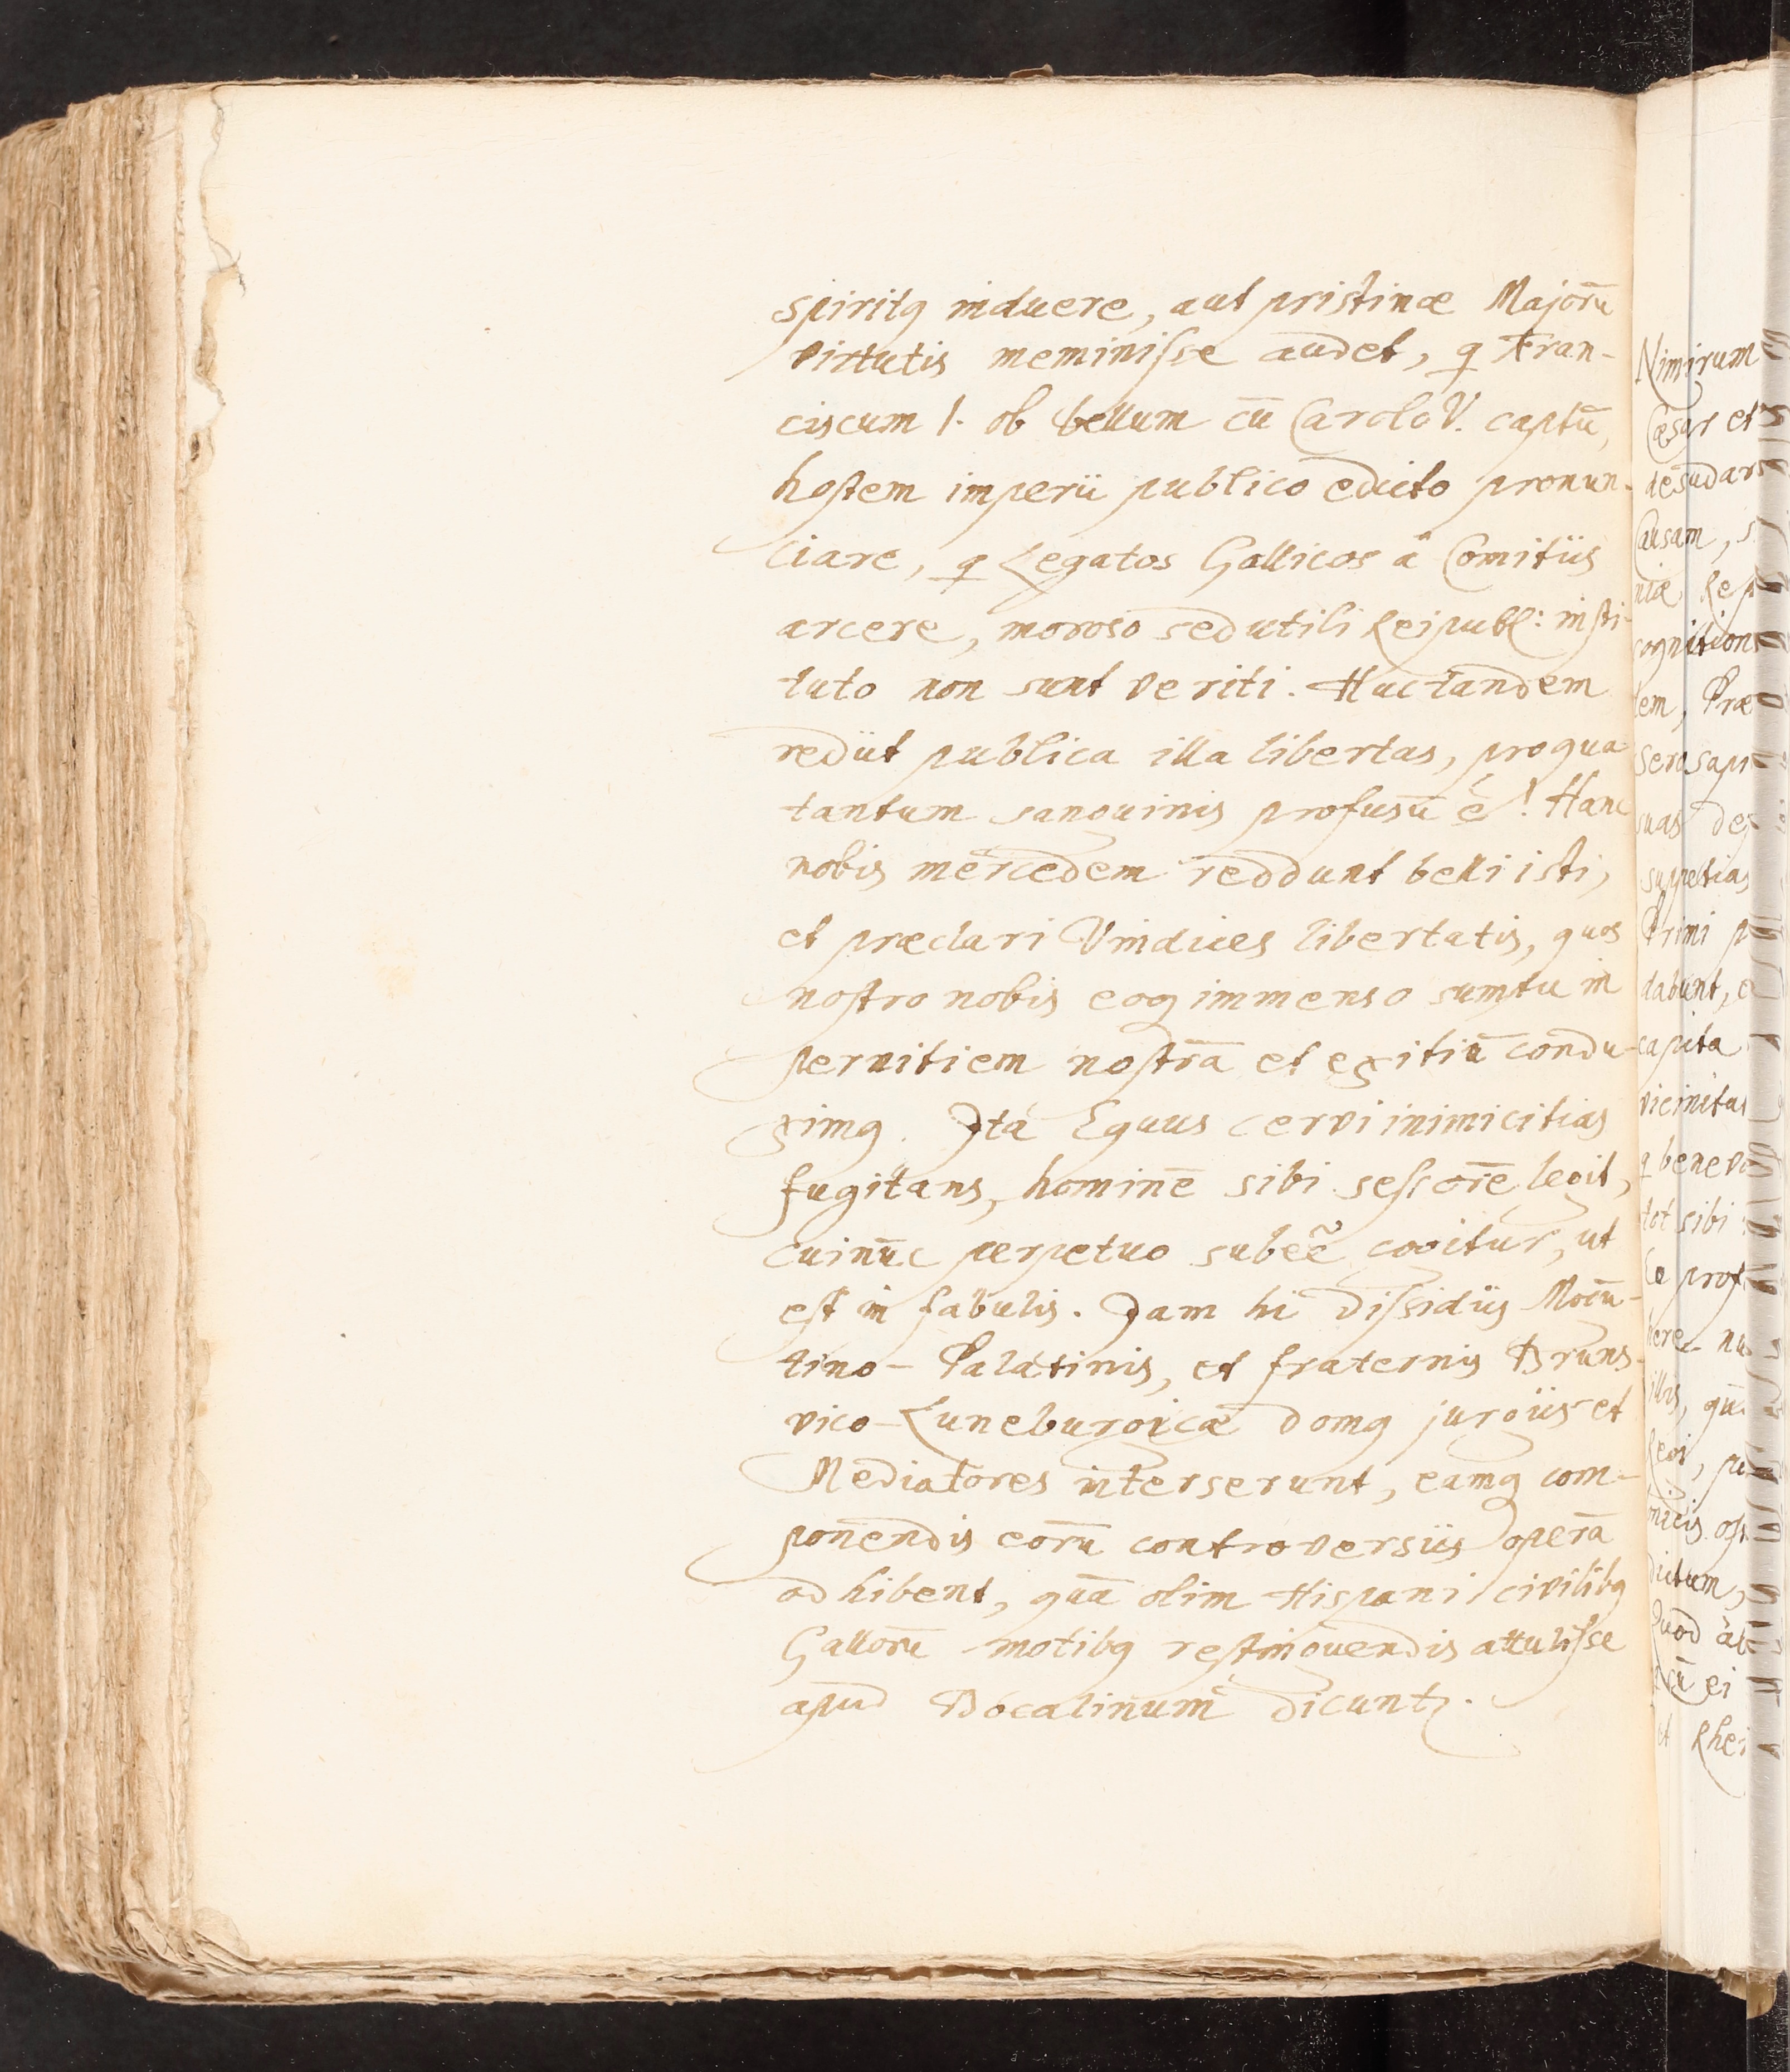 spiritꝰ induere, aut pristinæ Majorū
virtutis meminisse audet, q Fran-
ciscum I. ob bellum cū Carolo V. captū,
hostem imperii publico edicto pronun-
ciare, q Legatos Gallicos â Comitiis
arcere, moroso sed utili Reipubl: insti-
tuto non sunt veriti. Huc tandem
rediit publica illa libertas, pro qua
tantum sanguinis profusū ē! Hanc
nobis mercedem reddunt belli isti,
et præclari Vindices libertatis, quos
nostro nobis eoq immenso sumtu in
pernitiem nostrā et exitiū condu-
ximꝰ. Ita Equus cervi inimicitias
fugitans, hominē sibi sessorē legit,
cui nūc perpetuo subeē cogitur, ut
est in fabulis. Jam hi dissidiis Mogū-
tino-Palatinis, et fraternis Bruns-
vico-Luneburgicæ domꝰ jurgiis et
Mediatores interserunt, eamq com-
ponendis eorū controversiis operā
adhibent, quā olim Hispani civilibꝰ
Gallorū motibꝰ restinguendis attulisse
apud Bocalinum dicuntꝛ.
Nimirum
Cæsar et
Causam, s
niæ Rep
cognition
tem, Præ
suas des
suppetias
Primi p
dabunt, e
capita
vicinitas
q benevo
tot sibi
illis, quā
dictum,
Quod ab
ei
et Rhei